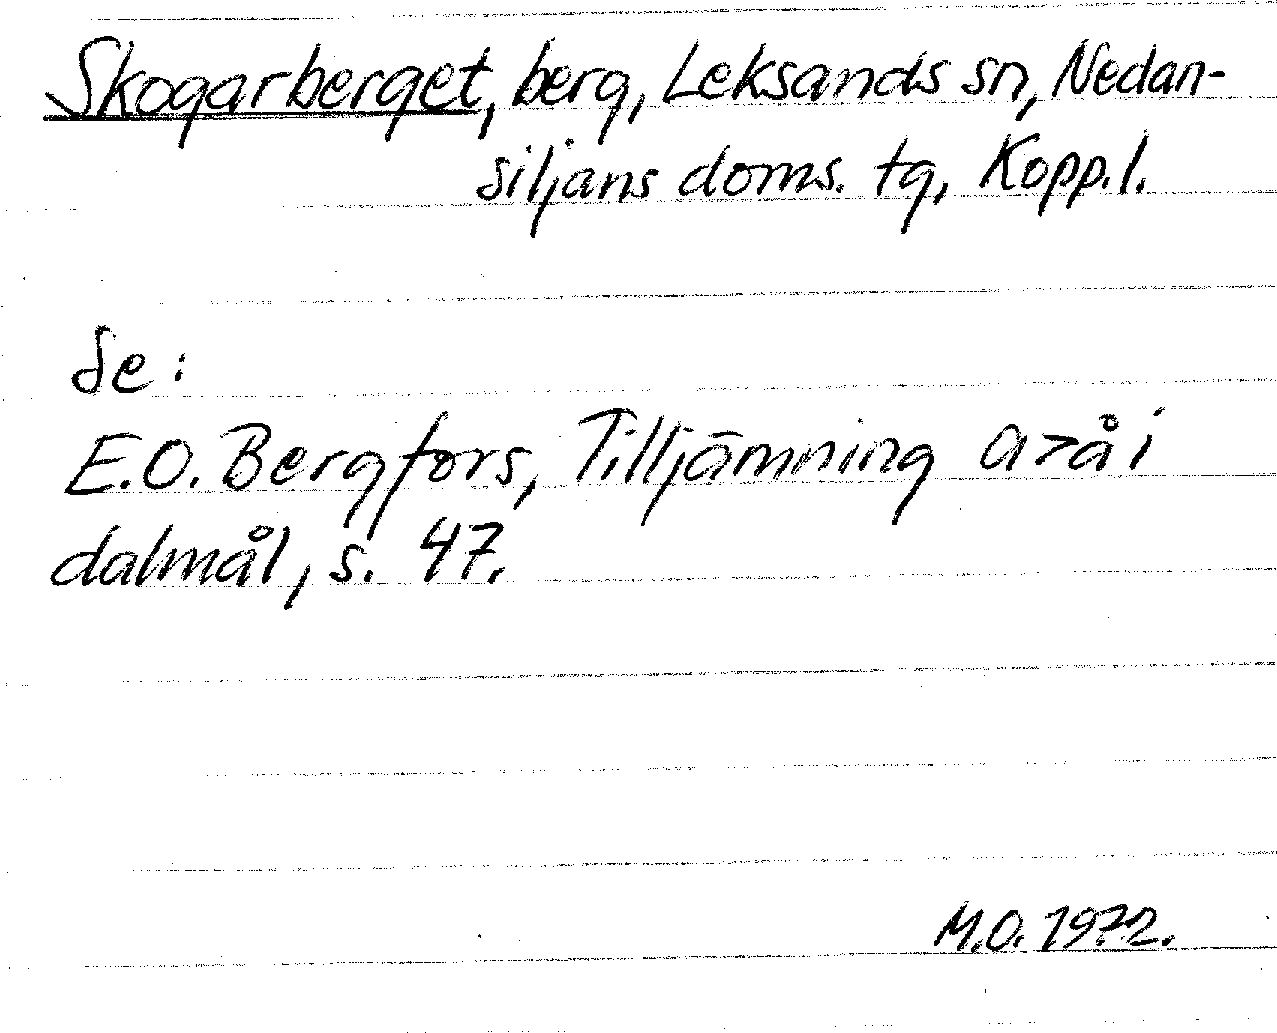 Skogarberget, berg, Leksands sn, Nedan-
siljans doms. tg, Kopp.l.
Se:
E.O. Bergfors, Tilljämning a>å i
dalmål, s. 47.
M.O. 1972.